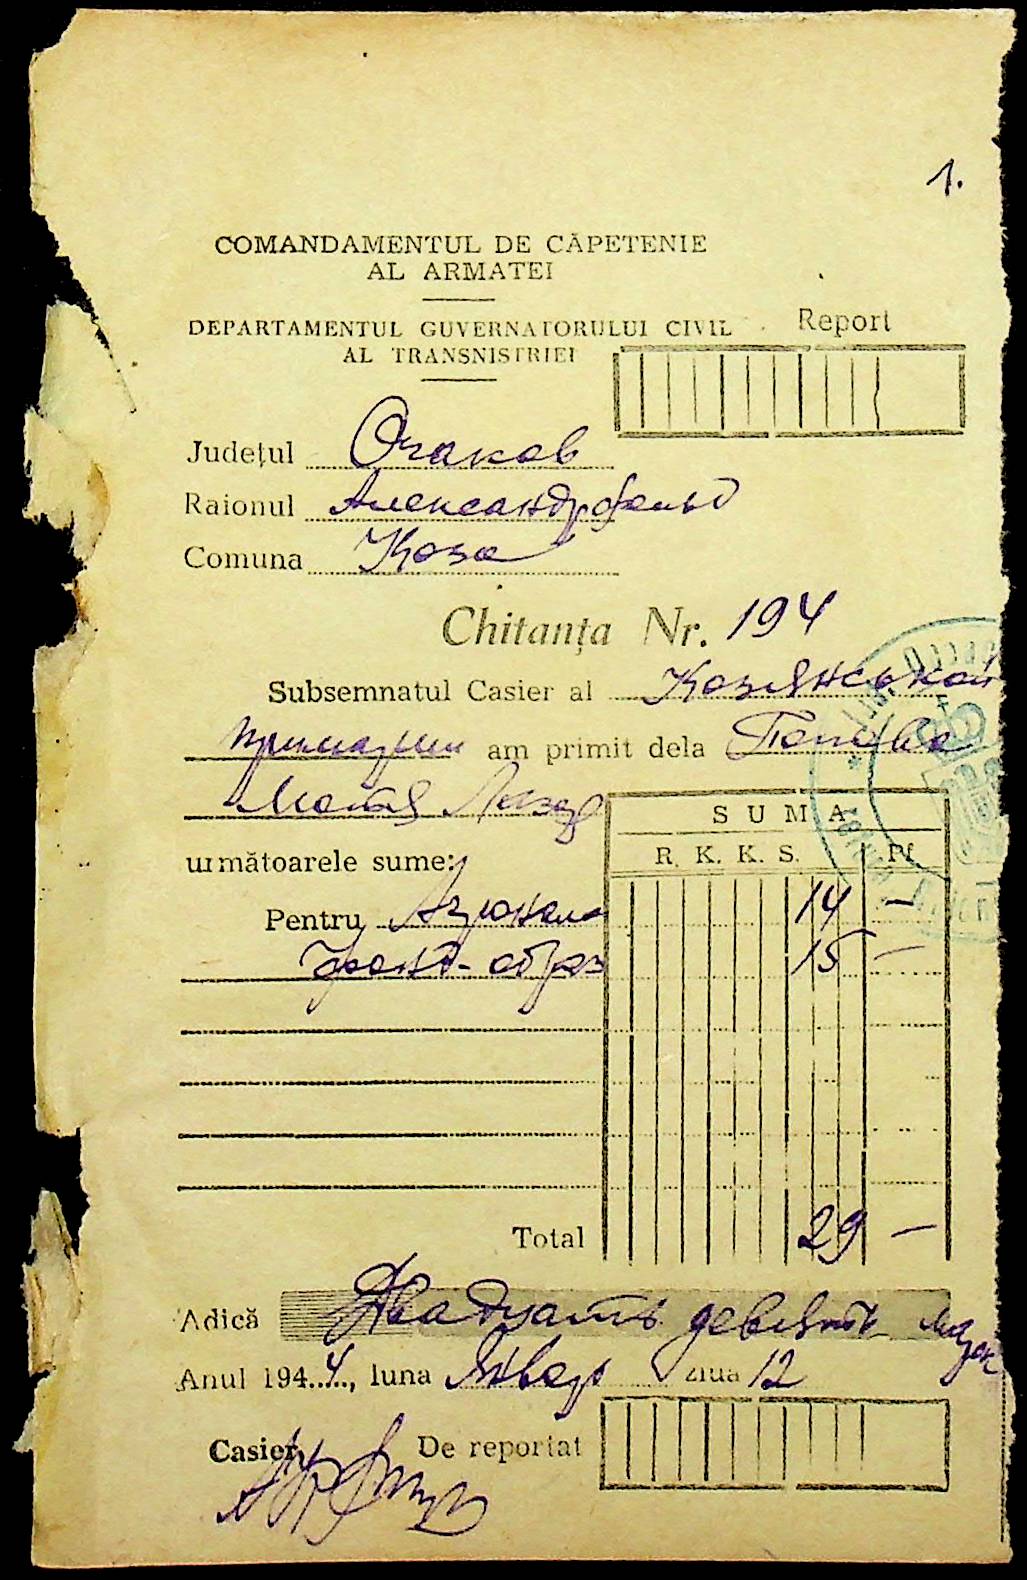 1.
COMANDAMENTUL DE CĂPETENIE
AL ARMATEI
DEPARTAMENTUL GUVERNATORULUI CIVIL
AL TRANSNISTRIEI
Report
Județul Очаков
Raionul Александрфельд
Comuna Коза
Chitanța Nr. 194
Subsemnatul Casier al Козянськой
примарии am primit dela
următoarele sume:
SUMA
R. K. K. S. Pf
Pentru 14 —
15 —
Total 29 —
Adică Двадцать девять марок
Anul 194..4.., luna Январ ziua 12
Casier, De reportat